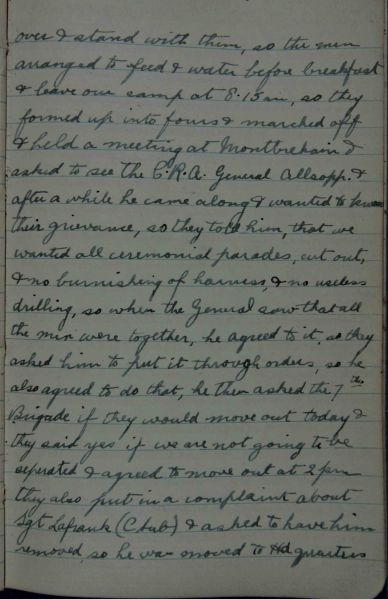 over & stand with them, so the men
arranged to feed & water before breakfast
& leave our camp at 8.15 am, so they
formed up into fours & marched off
& held a meeting at Montbrehain &
asked to see the C.R.A. General Allsopp. &
after a while he came along & wanted to know
their grievance, so they told him, that we
wanted all ceremonial parades, cut out,
& no burnishing of harness, & no useless
drilling, so when the General saw that all
the men were together, he agreed to it, so they
asked him to put it through orders, so he
also agreed to do that, he then asked the 7th
Brigade if they would move out today &
they said yes if we are not going to be
seperated & agreed to move out at 2 pm
they also put in a complaint about
Sgt Lafrank (Chub) & asked to have him
removed, so he was moved to Hd quarters